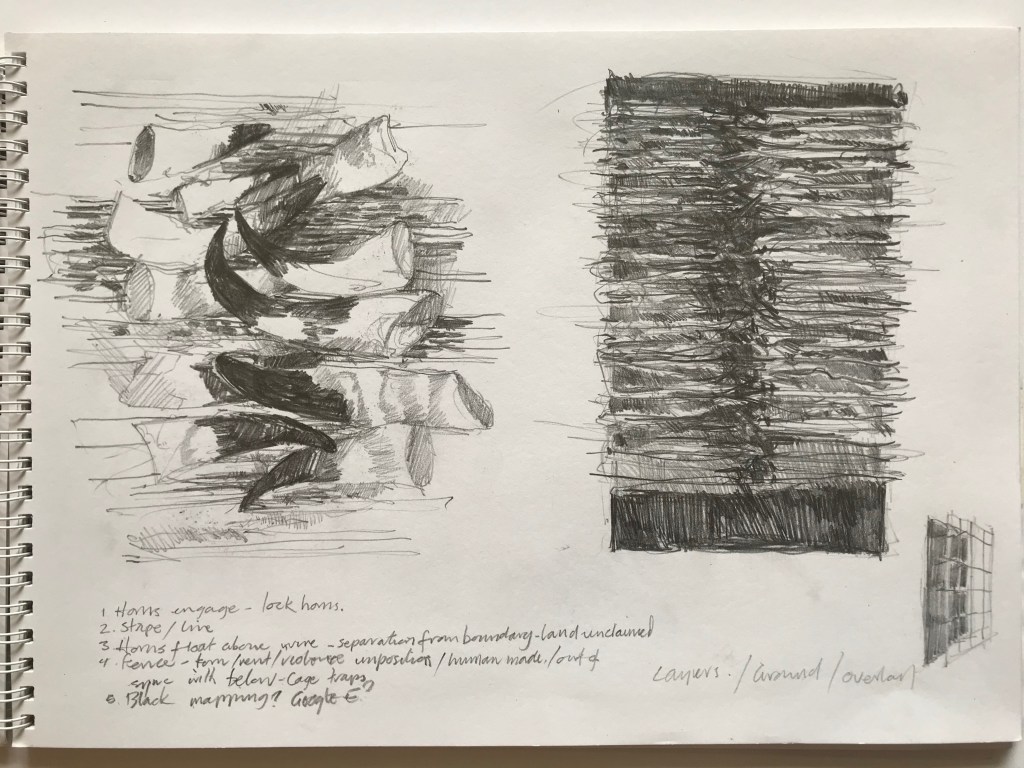 1 Horns engage - lock horns.
2. Stripe / Line
3 Horns float above wire - separation from boundary - land unclaimed
4. Fence - torn / rent / violence imposition / human made. / out of
sync with below - Cage traps
5 Black mapping? Google E?
Layers. / Ground / overlay